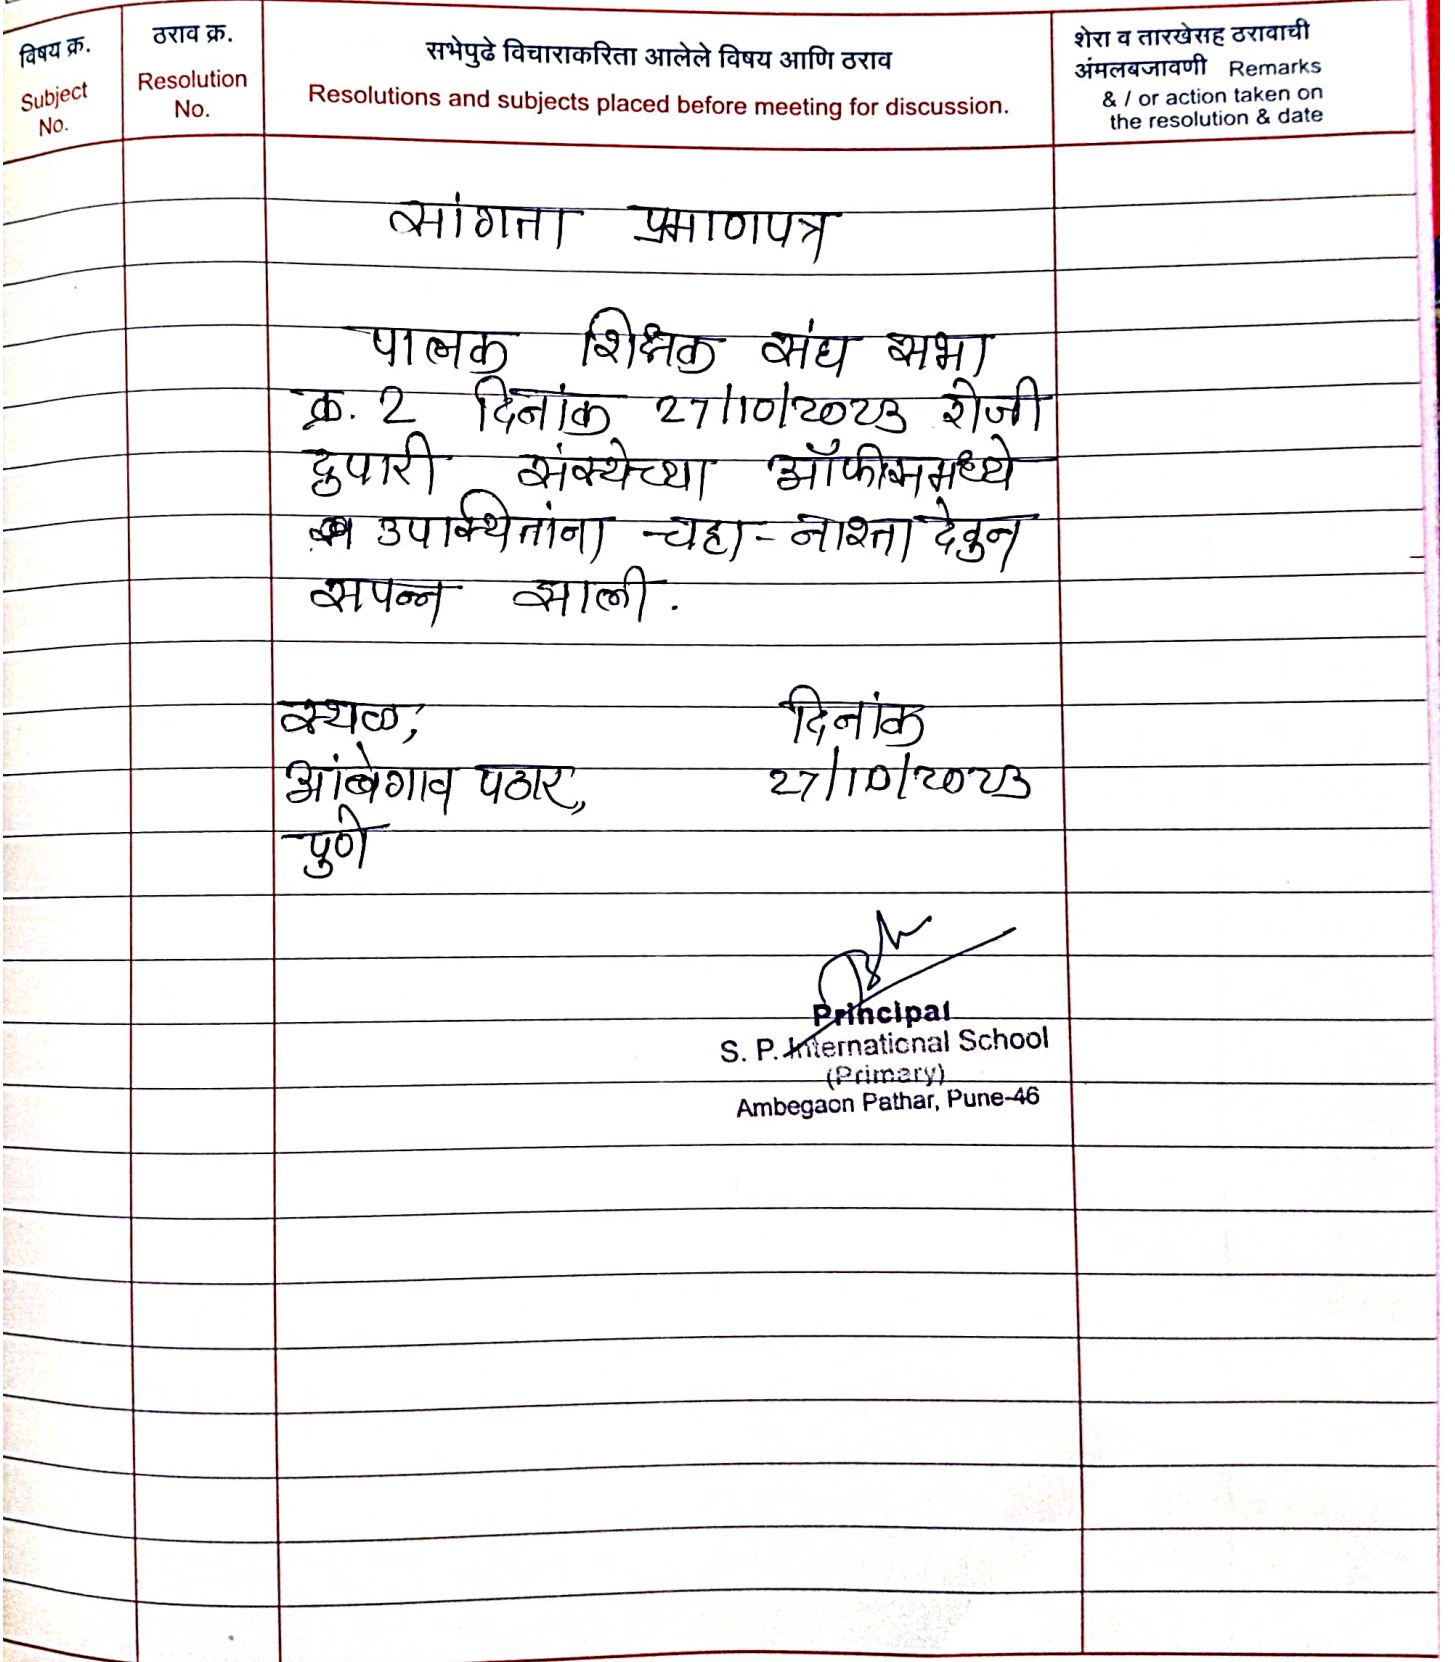 विषय क्र.
Subject
No.
ठराव क्र.
Resolution
No.
सभेपुढे विचाराकरिता आलेले विषय आणि ठराव
Resolutions and subjects placed before meeting for discussion.
शेरा व तारखेसह ठरावाची
अंमलबजावणी Remarks
& / or action taken on
the resolution & date
सांगता प्रमाणपत्र
पालक शिक्षक संघ सभा
क्र. 2 दिनांक 27/10/2023 रोजी
दुपारी संस्थेच्या ऑफीसमध्ये
उपस्थितांना चहा - नाश्ता देवुन
सपन्न झाली.
स्थळ,
आंबेगाव पठार,
पुणे
दिनांक
27/10/2023
Principal
S. P. International School
(Primary)
Ambegaon Pathar, Pune-46